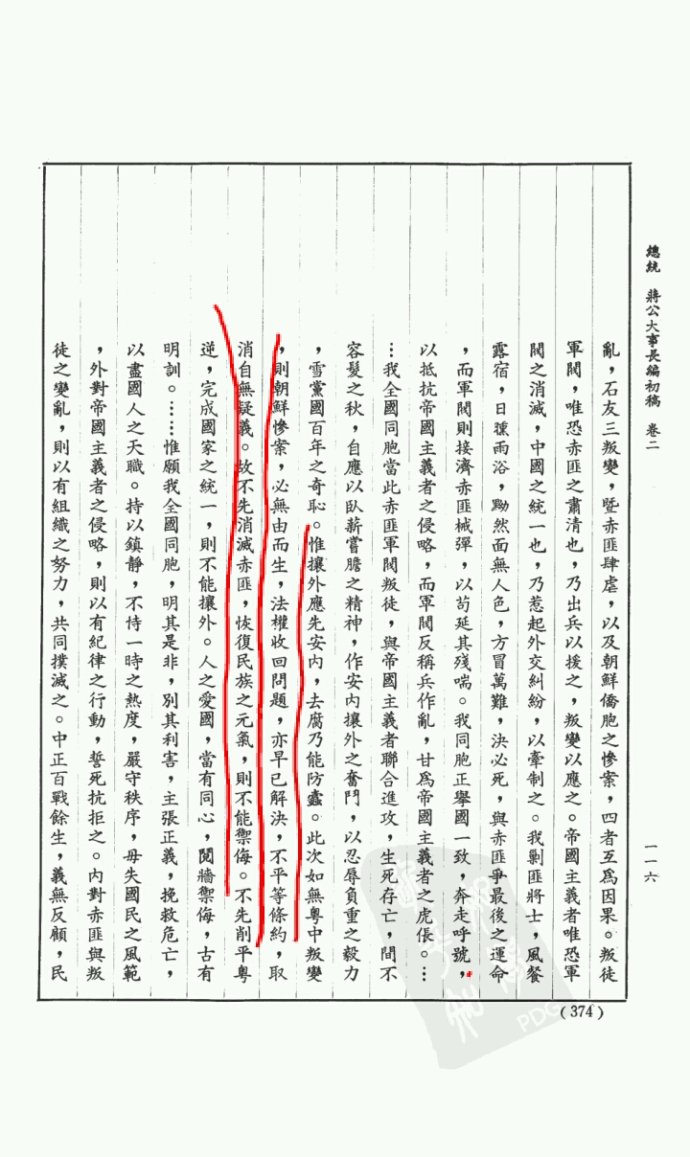 總統 蔣公大事長編初稿 卷二
一一六
亂，石友三叛變，暨赤匪肆虐，以及朝鮮僑胞之慘案，四者互爲因果。叛徒
軍閥，唯恐赤匪之肅清也，乃出兵以援之，叛變以應之。帝國主義者唯恐軍
閥之消滅，中國之統一也，乃惹起外交糾紛，以牽制之。我剿匪將士，風餐
露宿，日曛雨浴，黝然面無人色，方冒萬難，決必死，與赤匪爭最後之運命
，而軍閥則接濟赤匪械彈，以苟延其殘喘。我同胞正舉國一致，奔走呼號，
以抵抗帝國主義者之侵略，而軍閥反稱兵作亂，甘爲帝國主義者之虎倀。…
…我全國同胞當此赤匪軍閥叛徒，與帝國主義者聯合進攻，生死存亡，間不
容髮之秋，自應以臥薪嘗膽之精神，作安內攘外之奮鬥，以忍辱負重之毅力
，雪黨國百年之奇恥。惟攘外應先安內，去腐乃能防蠹。此次如無粵中叛變
，則朝鮮慘案，必無由而生，法權收回問題，亦早已解決，不平等條約，取
消自無疑義。故不先消滅赤匪，恢復民族之元氣，則不能禦侮。不先削平粵
逆，完成國家之統一，則不能攘外。人之愛國，當有同心，鬩牆禦侮，古有
明訓。……惟願我全國同胞，明其是非，別其利害，主張正義，挽救危亡，
以盡國人之天職。持以鎮靜，不恃一時之熱度，嚴守秩序，毋失國民之風範
，外對帝國主義者之侵略，則以有紀律之行動，誓死抗拒之。內對赤匪與叛
徒之變亂，則以有組織之努力，共同撲滅之。中正百戰餘生，義無反顧，民
(374)
PDG